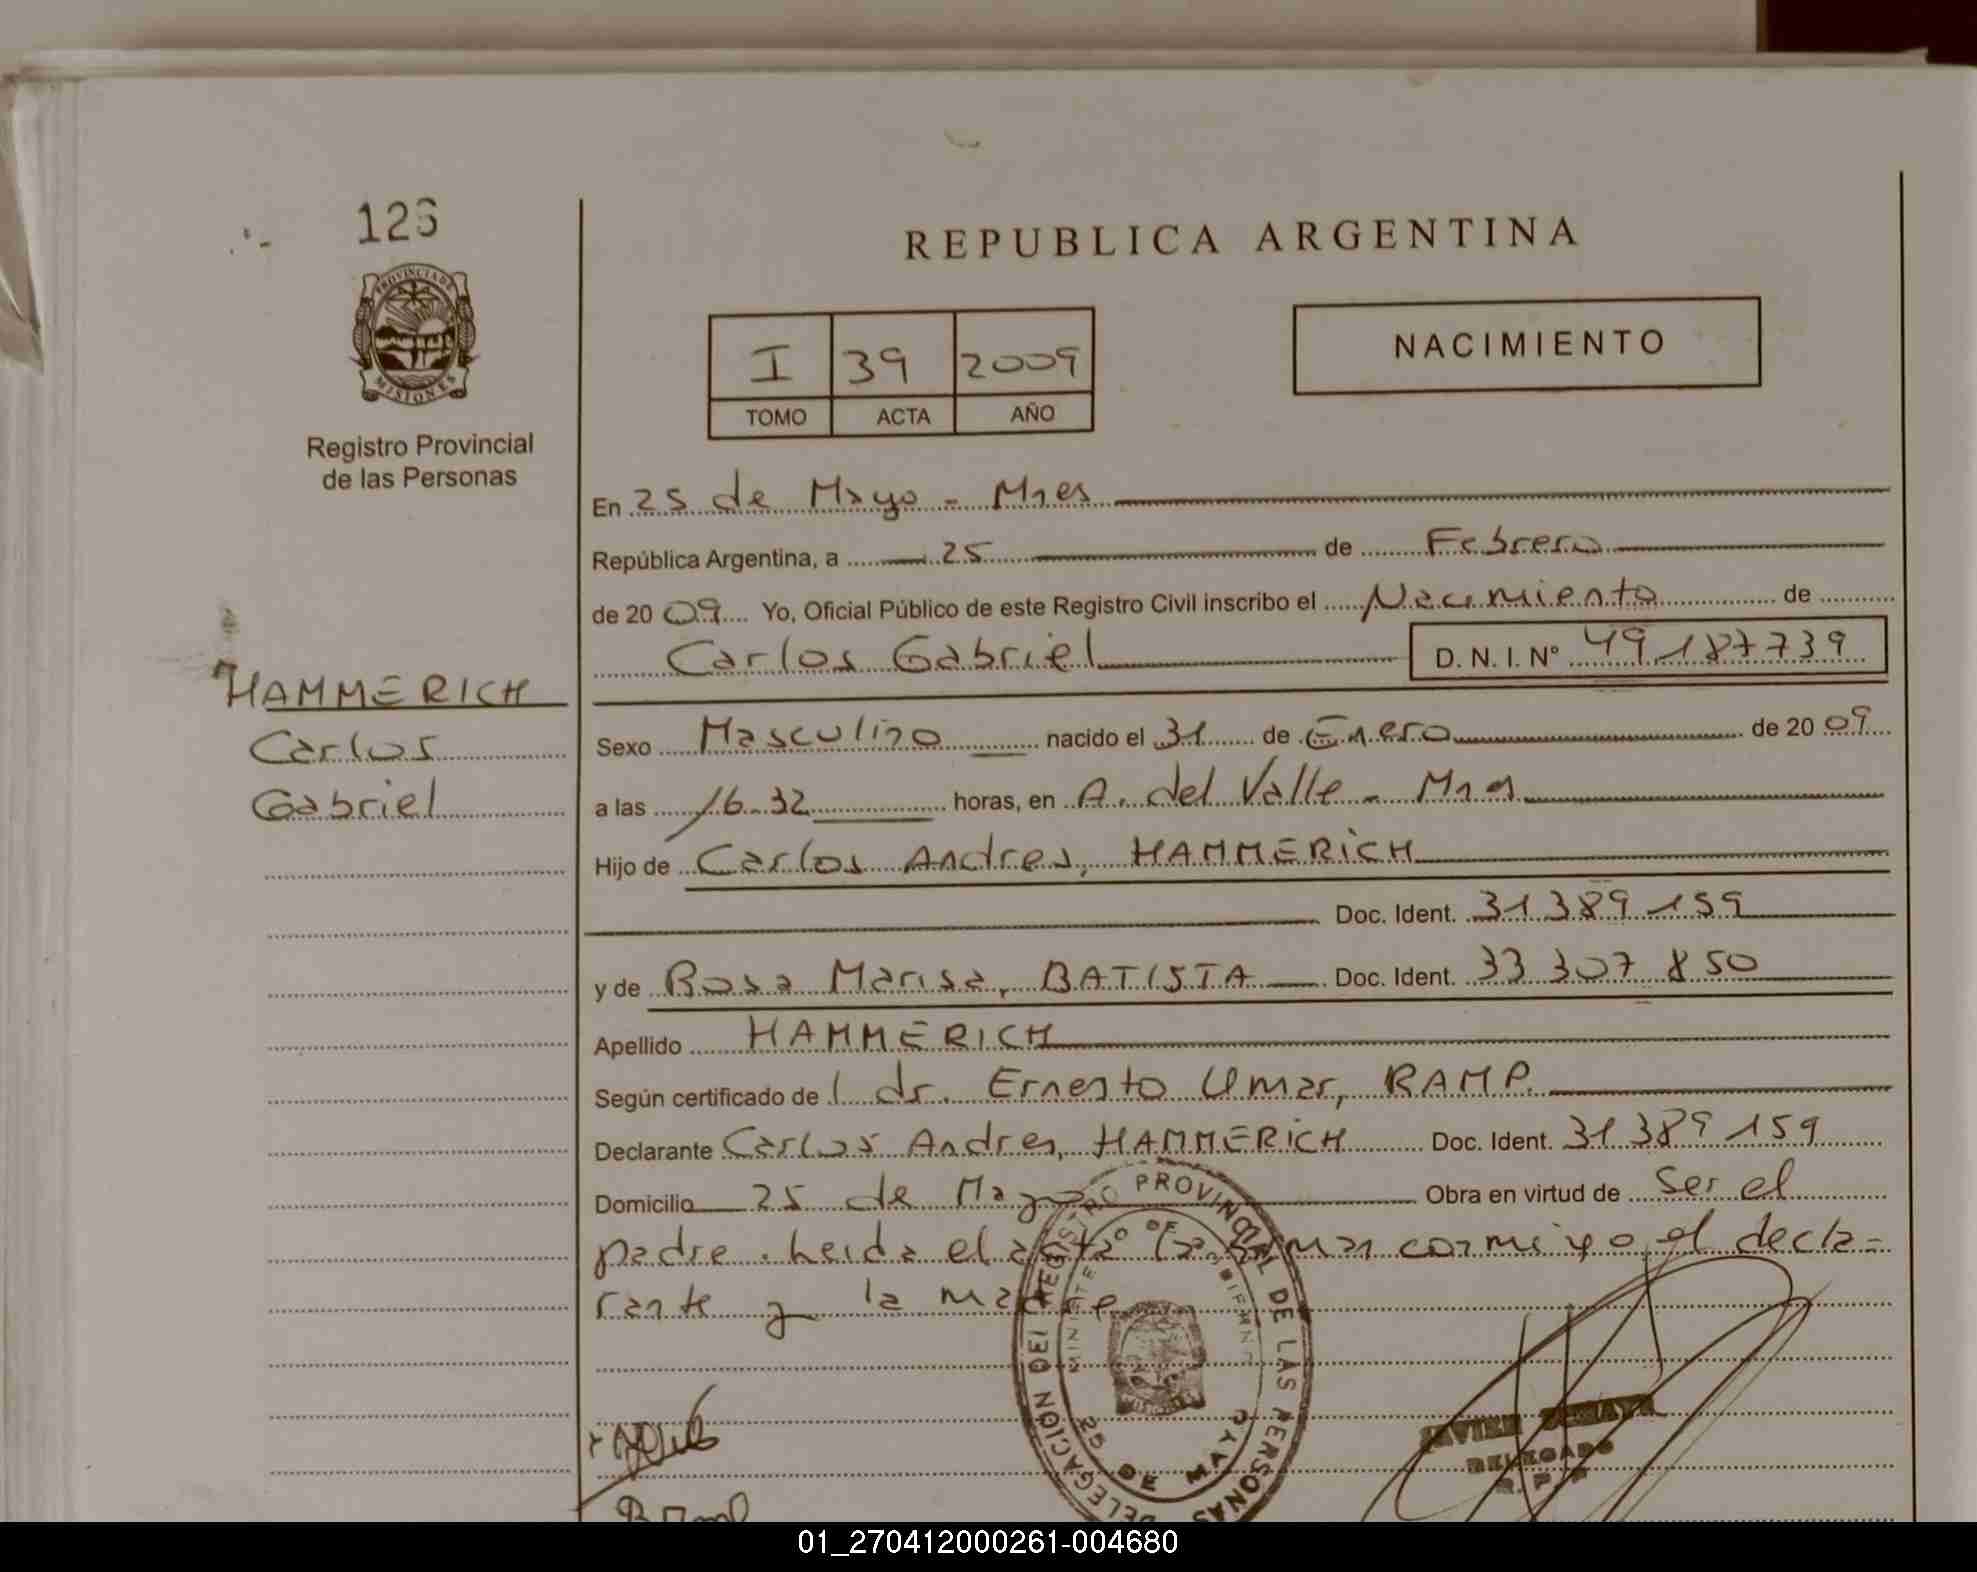 126
REPUBLICA ARGENTINA
PROVINCIA DE
MISIONES
I 39 2009
TOMO ACTA AÑO
NACIMIENTO
Registro Provincial
de las Personas
En 25 de Mayo - Mnes
República Argentina, a 25 de Febrero
de 20 09 Yo, Oficial Público de este Registro Civil inscribo el Nacimiento de
Carlos Gabriel D. N. I. N° 49 187 739
HAMMERICH
Carlos
Gabriel
Sexo Masculino nacido el 31 de Enero de 20 09
a las 16.32 horas, en A. del Valle - Mnes
Hijo de Carlos Andres, HAMMERICH
Doc. Ident. 31 389 159
y de Rosa Marisa, BATISTA Doc. Ident. 33 307 850
Apellido HAMMERICH
Según certificado de l dr. Ernesto Umar, RAMP.
Declarante Carlos Andres, HAMMERICH Doc. Ident. 31 389 159
Domicilio 25 de Mayo Obra en virtud de Ser el
padre. Leida el acta la firman conmigo, el decla-
rante y la madre
DELEGACION DEL REGISTRO PROVINCIAL DE LAS PERSONAS
25 DE MAYO
DELEGADO
01_270412000261-004680